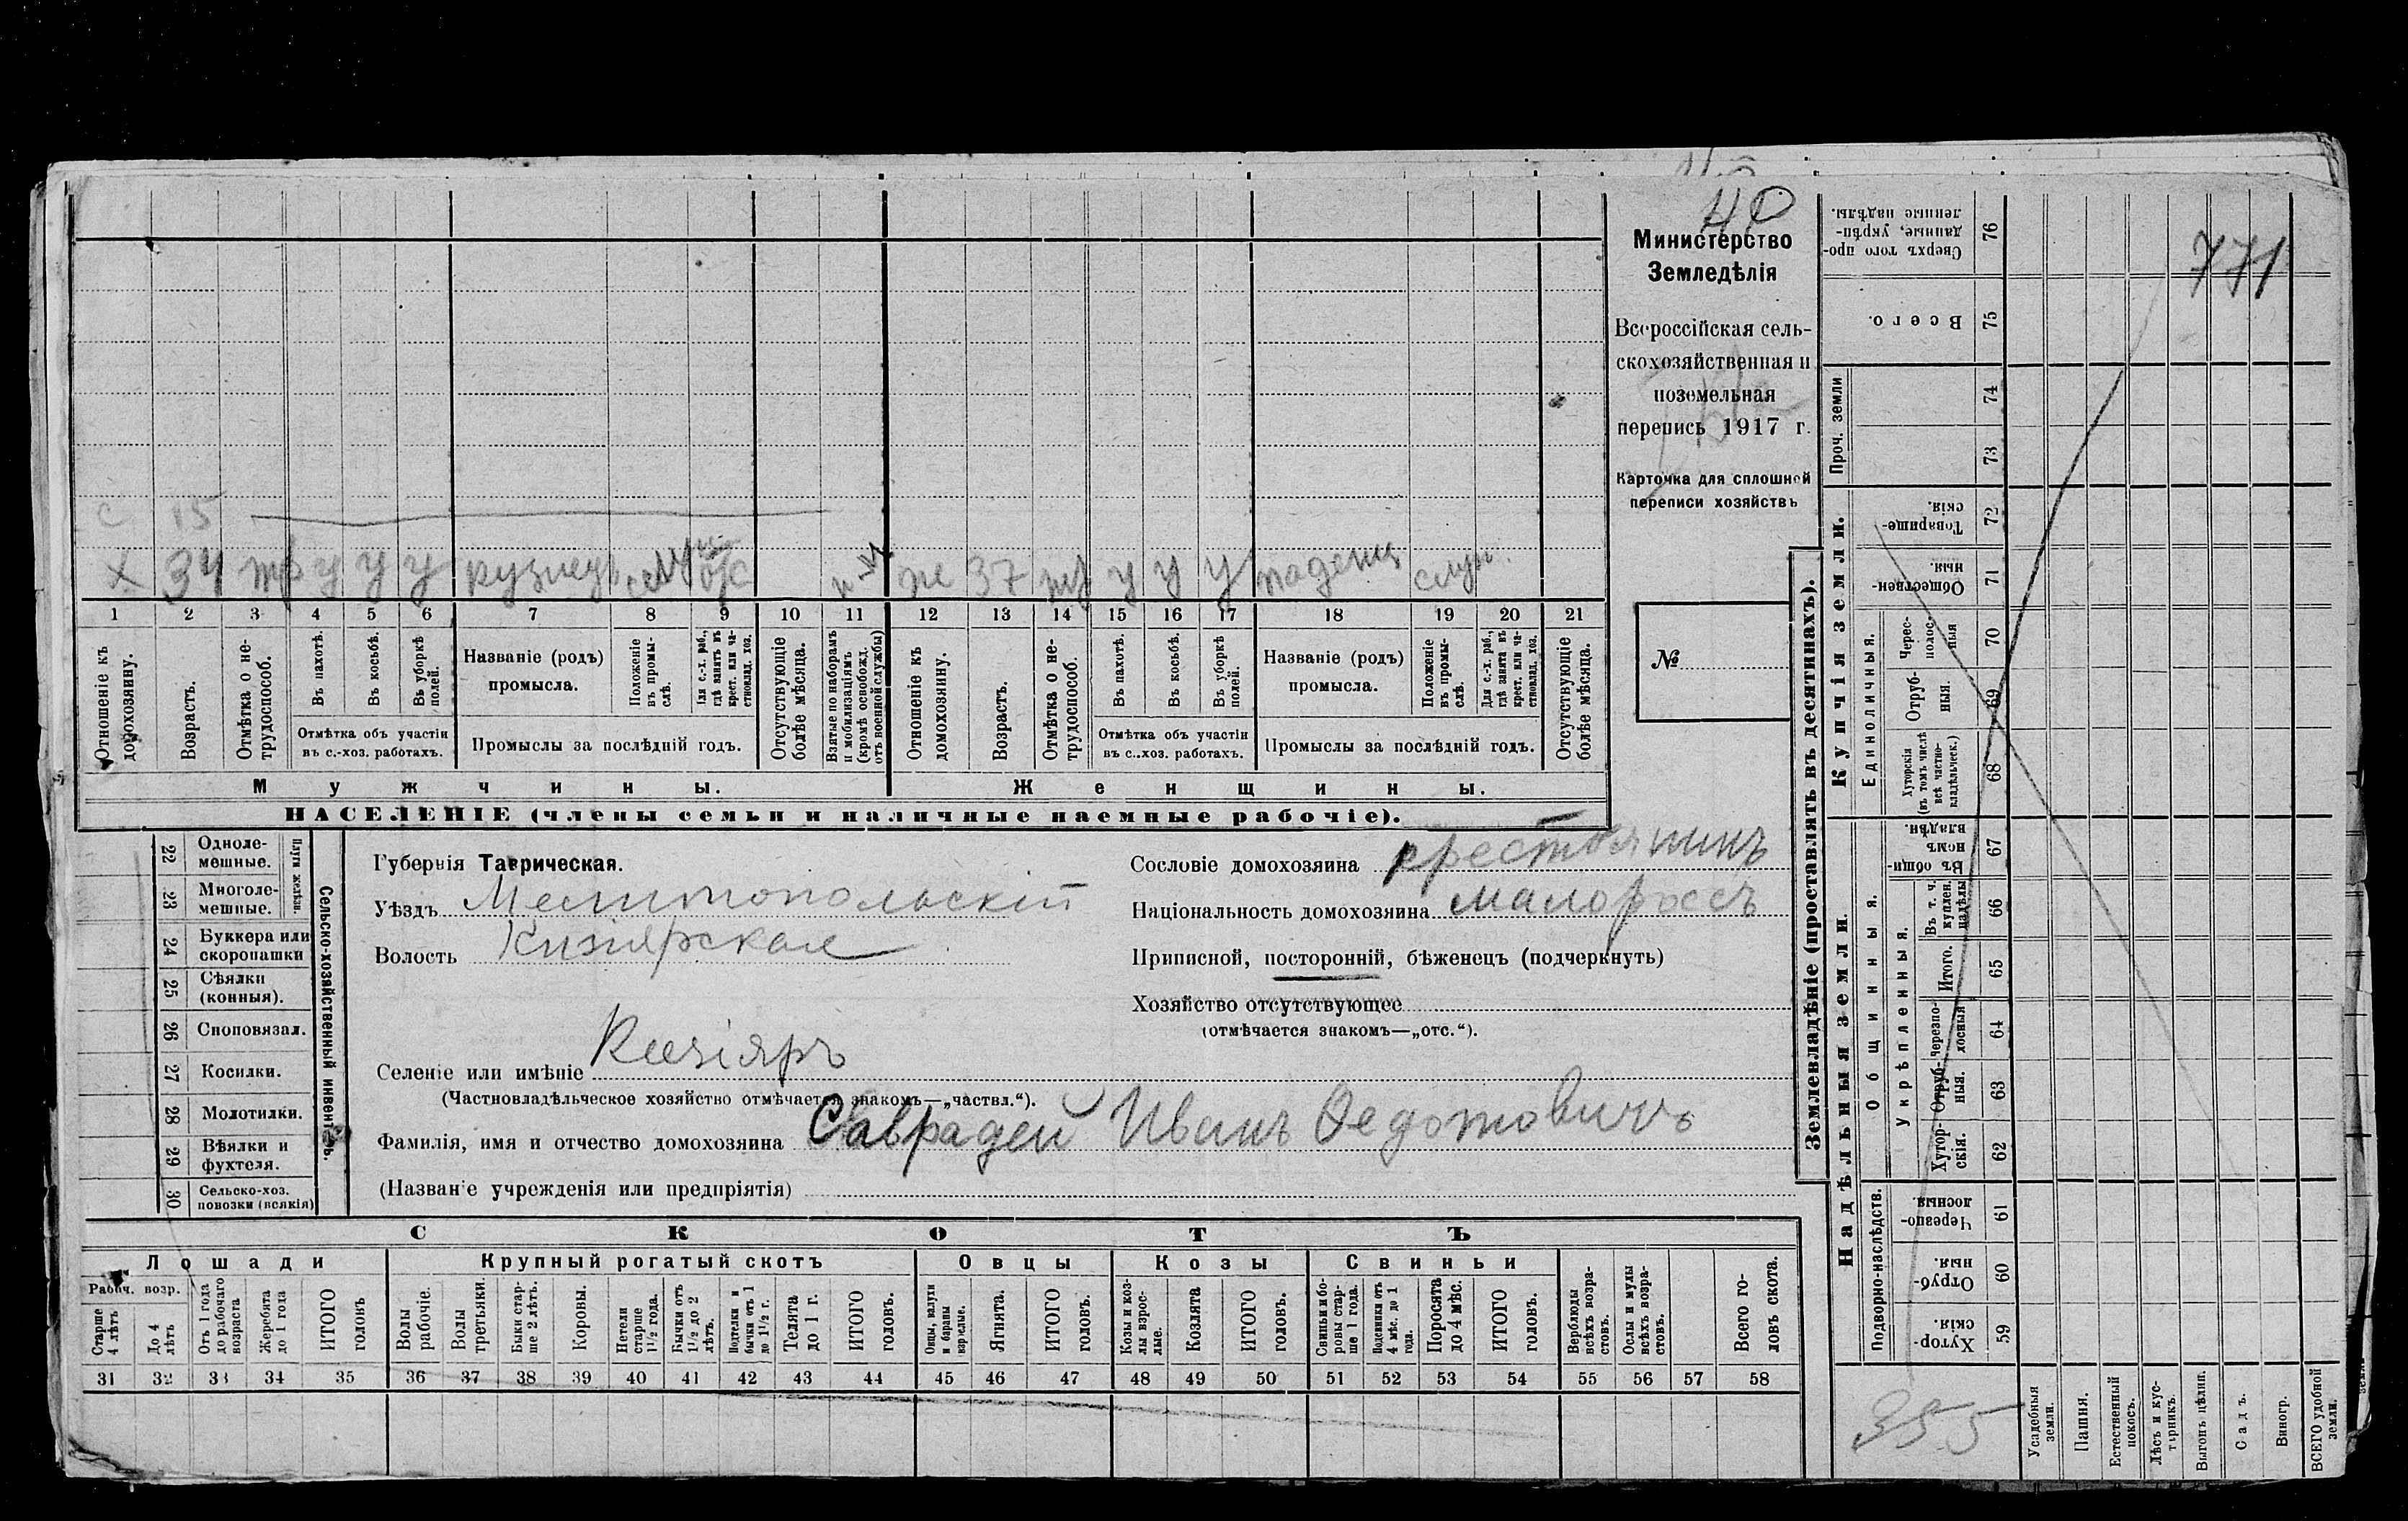 40
771
Министерство
Земледѣлія
Всероссійская сель-
скохозяйственная и
поземельная
перепись 1917 г.
Карточка для сплошной
переписи хозяйствъ
№
с 15
х 34 тр у у у кузнецъ
ж 37 тр у у у поденщ служ.
1 2 3 4 5 6 7 8 9 10 11 12 13 14 15 16 17 18 19 20 21
Отношеніе къ домохозяину.
Возрастъ.
Отмѣтка о не-трудоспособ.
Въ пахотѣ.
Въ косьбѣ.
Въ уборкѣ полей.
Отмѣтка объ участіи въ с.-хоз. работахъ.
Названіе (родъ) промысла.
Положеніе въ промы-слѣ.
Для с.-х. раб., гдѣ занятъ въ крест. или ча-стновлад. хоз.
Промыслы за послѣдній годъ.
Отсутствующіе болѣе мѣсяца.
Взятые по наборамъ и мобилизаціямъ (кромѣ освобожд. отъ военной службы)
Отношеніе къ домохозяину.
Возрастъ.
Отмѣтка о не-трудоспособ.
Въ пахотѣ.
Въ косьбѣ.
Въ уборкѣ полей.
Отмѣтка объ участіи въ с.-хоз. работахъ.
Названіе (родъ) промысла.
Положеніе въ промы-слѣ.
Для с.-х. раб., гдѣ занята въ крест. или ча-стновлад. хоз.
Промыслы за послѣдній годъ.
Отсутствующіе болѣе мѣсяца.
Мужчины.
Женщины.
НАСЕЛЕНІЕ (члены семьи и наличные наемные рабочіе).
22 Одноле-мешные.
23 Многоле-мешные.
Плуги желѣзн.
24 Буккера или скоропашки
25 Сѣялки (конныя).
26 Сноповязал.
27 Косилки.
28 Молотилки.
29 Вѣялки и фухтеля.
30 Сельско-хоз. повозки (всякія)
Сельско-хозяйственный инвентарь.
Губернія Таврическая.
Уѣздъ Мелитопольскій
Волость Кизіярская
Селеніе или имѣніе Кизіяръ
(Частновладѣльческое хозяйство отмѣчается знакомъ—„частвл.“).
Фамилія, имя и отчество домохозяина Саврадей Иванъ Федотовичъ
(Названіе учрежденія или предпріятія)
Сословіе домохозяина крестьянинъ
Національность домохозяина малороссъ
Приписной, посторонній, бѣженецъ (подчеркнуть)
Хозяйство отсутствующее
(отмѣчается знакомъ—„отс.“).
СКОТЪ
Лошади
Крупный рогатый скотъ
Овцы
Козы
Свиньи
Рабоч. возр.
Старше 4 лѣтъ
До 4 лѣтъ
Отъ 1 года до рабочаго возраста
Жеребята до 1 года
ИТОГО головъ
Волы рабочіе.
Волы третьяки.
Быки стар-ше 2 лѣтъ.
Коровы.
Нетели старше 1½ года.
Бычки отъ 1½ до 2 лѣтъ.
Подтелки и бычки отъ 1 до 1½ г.
Телята до 1 г.
ИТОГО головъ.
Овцы, валухи и бараны взрослые.
Ягнята.
ИТОГО головъ.
Козы и коз-лы взрос-лые.
Козлята
ИТОГО головъ.
Свиньи и бо-ровы стар-ше 1 года.
Подсвинки отъ 4 мѣс. до 1 года.
Поросята до 4 мѣс.
ИТОГО головъ.
Верблюды всѣхъ возра-стовъ.
Ослы и мулы всѣхъ возра-стовъ.
Всего го-ловъ скота.
31 32 33 34 35 36 37 38 39 40 41 42 43 44 45 46 47 48 49 50 51 52 53 54 55 56 57 58
Землевладѣніе (проставлять въ десятинахъ).
Надѣльныя земли.
Купчія земли.
Проч. земли
Подворно-наслѣдств.
Общинныя.
Укрѣпленныя.
Единоличныя.
76 Сверхъ того про-данные, укрѣп-ленные надѣлы.
75 Всего.
74
73
72 Товарище-скія.
71 Обществен-ныя.
70 Черес-полос-ныя
69 Отруб-ныя.
68 Хуторскія (въ томъ числѣ всѣ частно-владѣльческ.)
67 Въ общи-номъ владѣн.
66 Въ т. ч. куплен. надѣлы
65 Итого.
64 Черезпо-лосныя
63 Отруб-ныя.
62 Хутор-скія.
61 Черезпо-лосныя
60 Отруб-ныя.
59 Хутор-скія.
355
Усадебныя земли.
Пашня.
Естественный покосъ.
Лѣсъ и кус-тарникъ.
Выгонъ цѣлин.
Садъ.
Виногр.
ВСЕГО удобной земли.